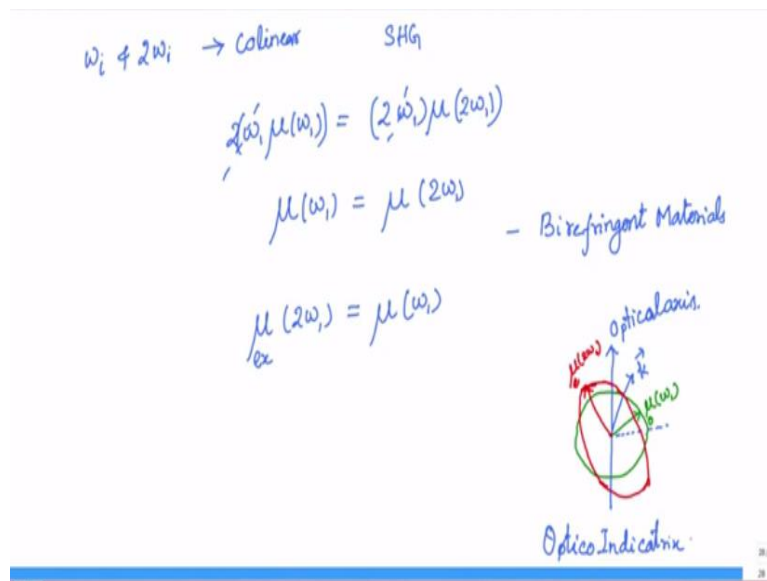 ωi & 2ωi → Colinear SHG
2(ω₁ μ(ω₁)) = (2ω₁)μ(2ω₁)
μ(ω₁) = μ(2ω₁)
- Birefringent Materials
μex(2ω₁) = μ(ω₁)
Optical axis.
k⃗
μ₀(ω₁)
Optico Indicatrix.
28